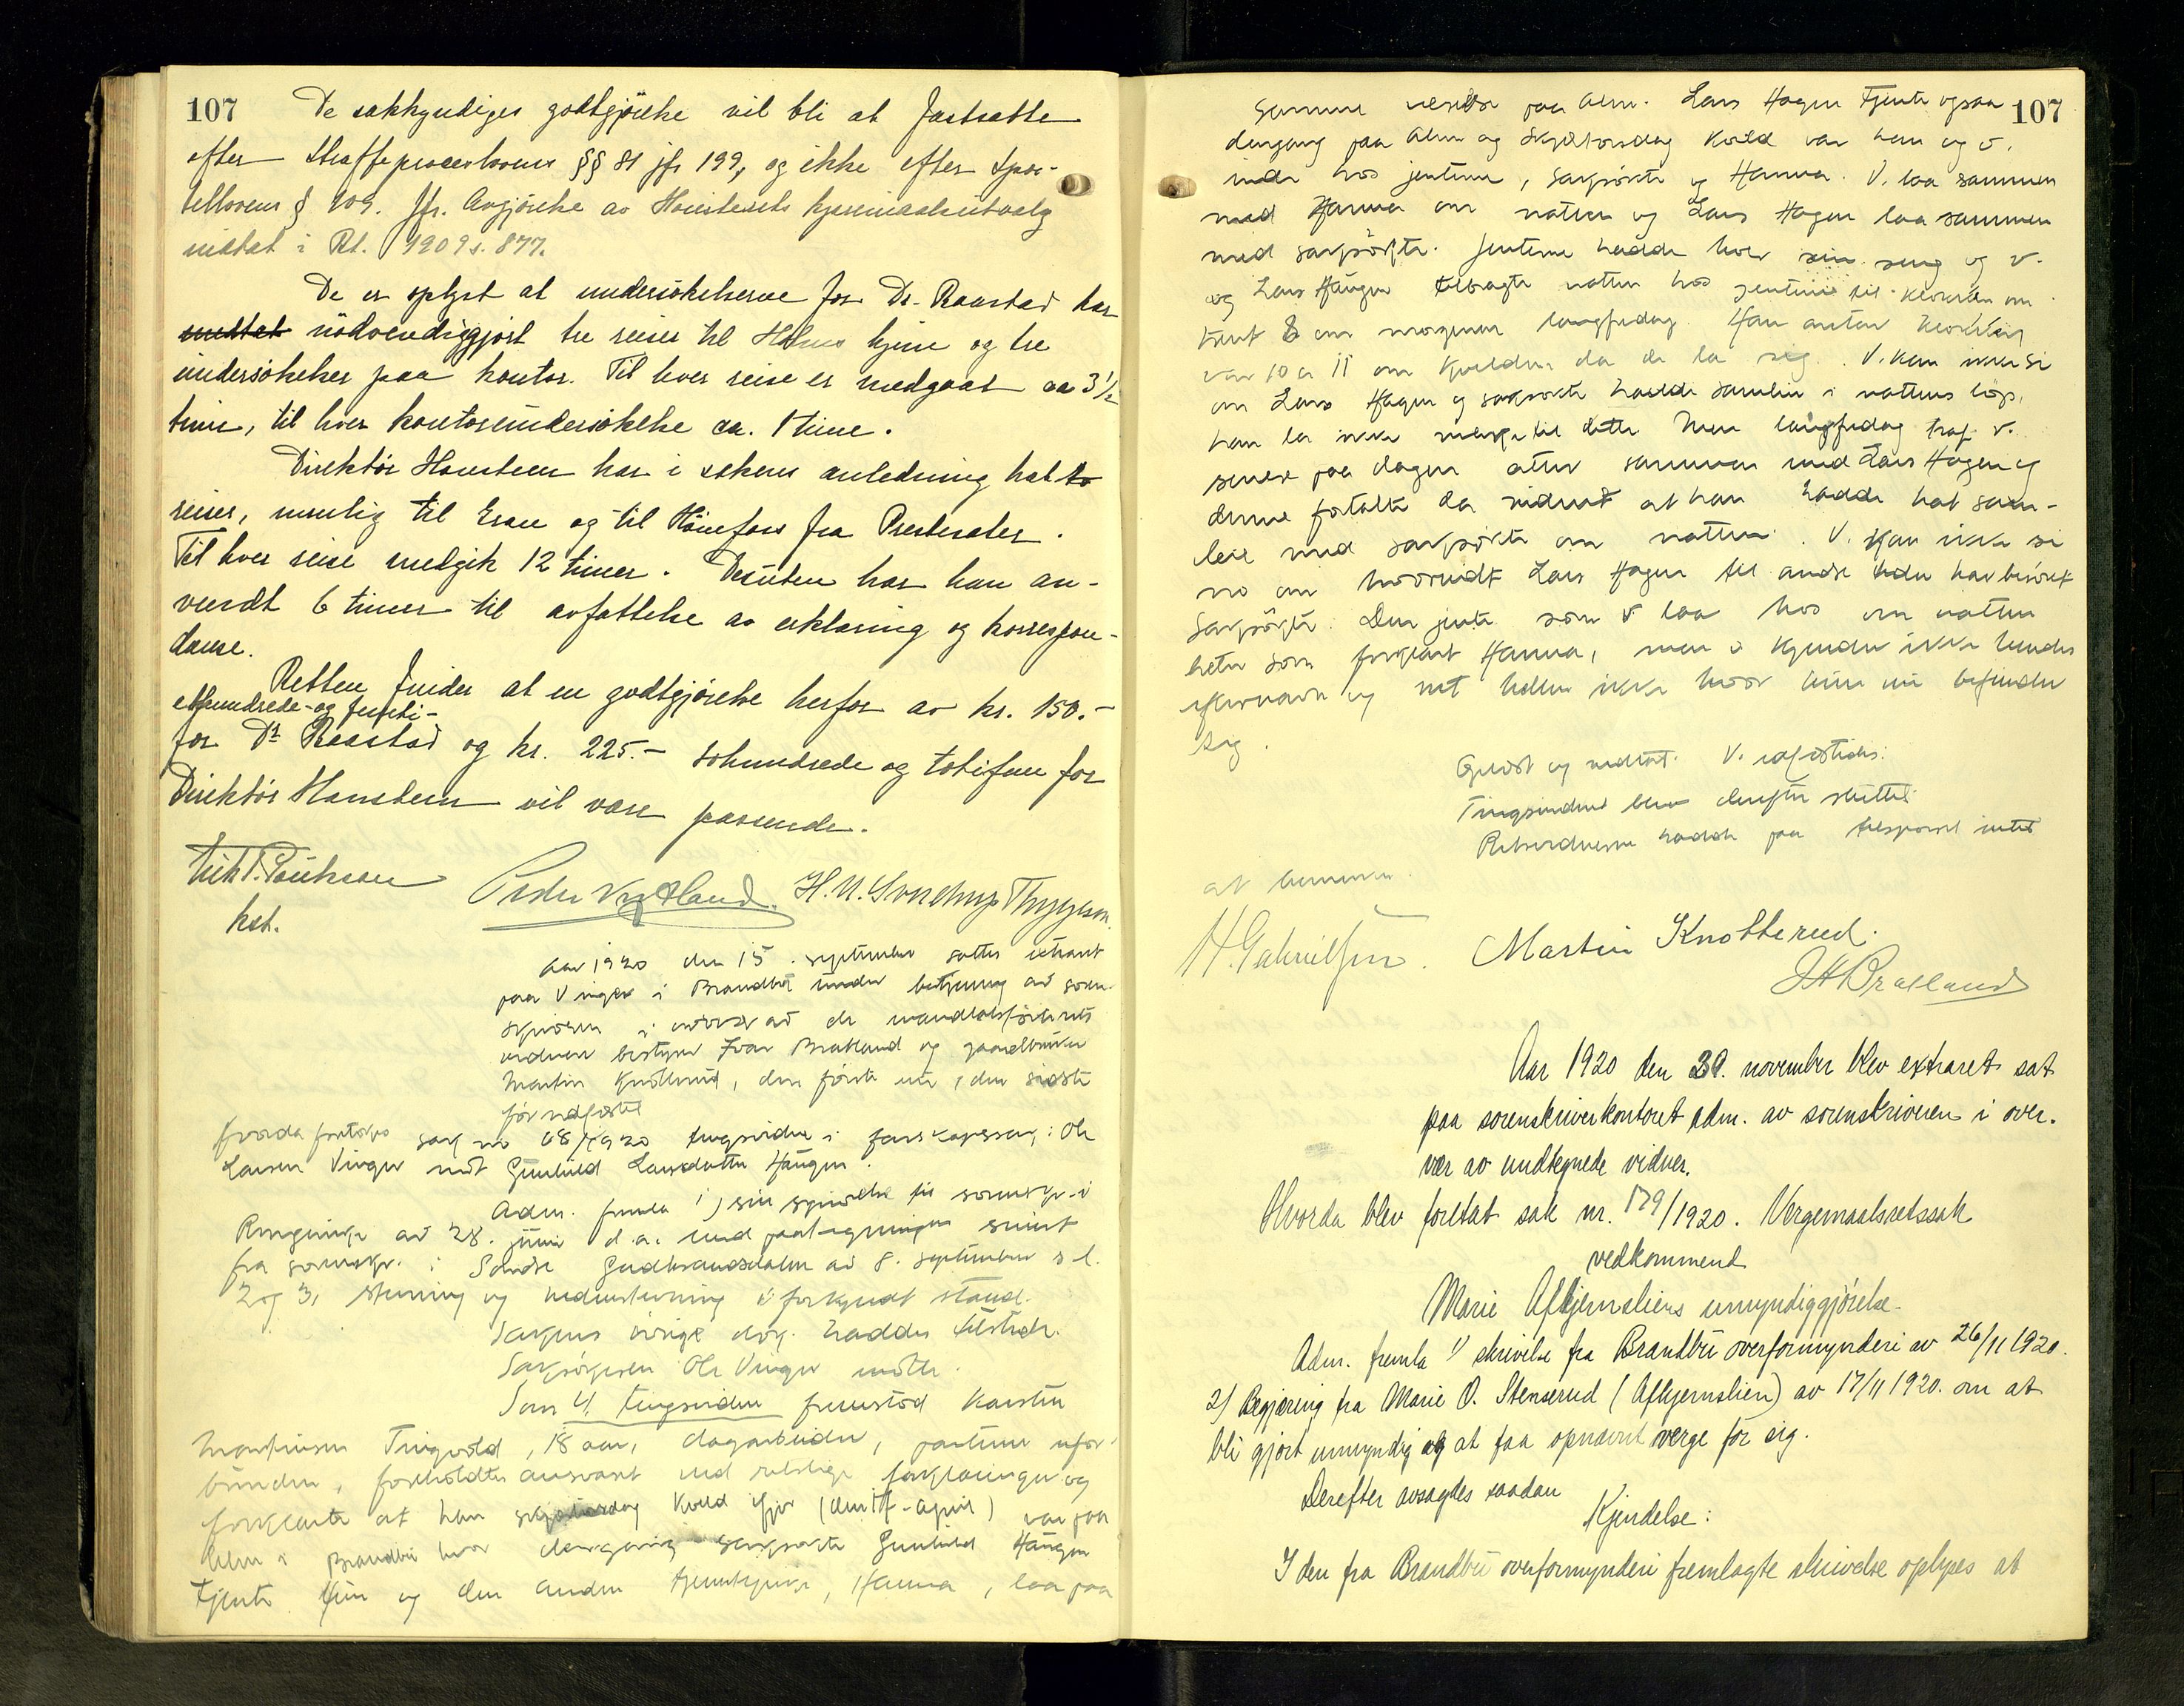 107
De sakkyndiges godtgjörelse vil bli at fastsætte
efter straffeprocesslovens §§ 81 jfr 199, og ikke efter spor-
tellovens § 109. Jfr. Avgjörelse av Høiesterets kjæremaalsutvalg
inntat i Rt. 1909 s. 877.
De er oplyst at undersökelserne for Dr. Raastad har
medtat nödvendiggjort tre reiser til hjem og tre
undersökelser paa kontor. Til hver reise er medgaat ca 3 1/2
time, til hver kontorundersökelse ca. 1 time.
Direktör Hansteen har i sakens anledning hat to
reiser, nemlig til Gran og til Hönefoss fra Presteseter.
Til hver reise medgik 12 timer. Desuten har han an-
vendt 6 timer til avfattelse av erklæring og korrespon-
danse.
Retten finder at en godtgjörelse herfor av kr. 150.-
ethundrede-og femti-
for Dr Raastad og kr. 225.- tohundrede og totifem for
Direktör Hansteen vil være passende.
kst.
H. N. Svendrup Thygeson
Aar 1920 den 15. september sattes extraret
paa Vinger i Brandbu under betjening av soren-
skriveren i overvær av de mandtalsförte rets
vidner bestyrer Ivar Brætland og gaardbruker
Martin Knotterud, den förste ny, den sidste
för edfæstet
Hvorda foretoges sak no 68/1920 tingsvidne i farskapssak: Ole
Larsen Vinger mot Gunhild Larsdatter Haugen.
Adm. fremla 1) sin skrivelse til sorenskr. i
Ringerike av 28. juni d.a. med paategninger senest
fra sorenskr. i Söndre Gudbrandsdalen av 8. september s.l.
2 og 3, stevning og vidnestevning i forkyndt stand.
Sakens övrige dok. haddes tilstede.
Saksökeren Ole Vinger mötte.
Som 4. tingsvidne fremstod Karsten
Martinsen Tingvold, 18 aar, dagarbeider, partene ufor-
bunden, foreholdtes ansvaret ved retslige forklaringer og
forklarte at han skjærtorsdag kveld ifjor (den 17-april) var paa
Alm i Brandbu hvor dengang saksökte Gunhild Haugen
tjente. Hun og den anden tjenestejente, Hanna, laa paa
107
samme værelse paa Alm. Lars Hagen tjente ogsaa
dengang paa Alm og skjærtorsdag kveld var han og v.
inde hos jentene, saksökte og Hanna. V. laa sammen
med Hanna om natten og Lars Hagen laa sammen
med saksökte. Jentene hadde hver sin seng og v.
og Lars Haugen tilbragte natten hos jentene til klokken om
trent 6 om morgenen langfredag. Han antar klokken
var 10 a 11 om kvelden da de la sig. V. kan ikke si
om Lars Hagen og saksökte hadde samleie i nattens löp,
han la ikke merke til dette. Men langfredag traf v.
senere paa dagen atter sammen med Lars Hagen og
denne fortalte da vidnet at han hadde hat sam-
leie med saksökte om natten. V. kan ikke si
no om hvorvidt Lars Hagen til andre tider har besökt
saksökte. Den jente som v laa hos om natten
heter som forklart Hanna, men v kjender ikke hendes
efternavn og vet heller ikke hvor hun nu befinder
sig.
Oplæst og vedtat. V. edfæstedes.
Tingsvidnet blev derefter sluttet.
Retsvidnerne hadde paa tilspörsel intet
at bemerke.
H. Gabrielsen. Martin Knotterud.
Aar 1920 den 30. november blev extraret sat
paa sorenskriverkontoret adm. av sorenskriveren i over-
vær av undtegnede vidner.
Hvorda blev foretat sak nr. 179/1920. Vergemaalsretssak
vedkommend
Marie Afkjernsliens umyndiggjörelse.
Adm. fremla 1) skrivelse fra Brandbu overformynderi av 26/11 1920.
2) Begjæring fra Marie O. Stenserud (Afkjernslien) av 17/11 1920. om at
bli gjort umyndig og at faa opnævnt verge for sig.
Derefter avsagdes saadan
Kjendelse:
I den fra Brandbu overformynderi fremlagte skrivelse oplyses at